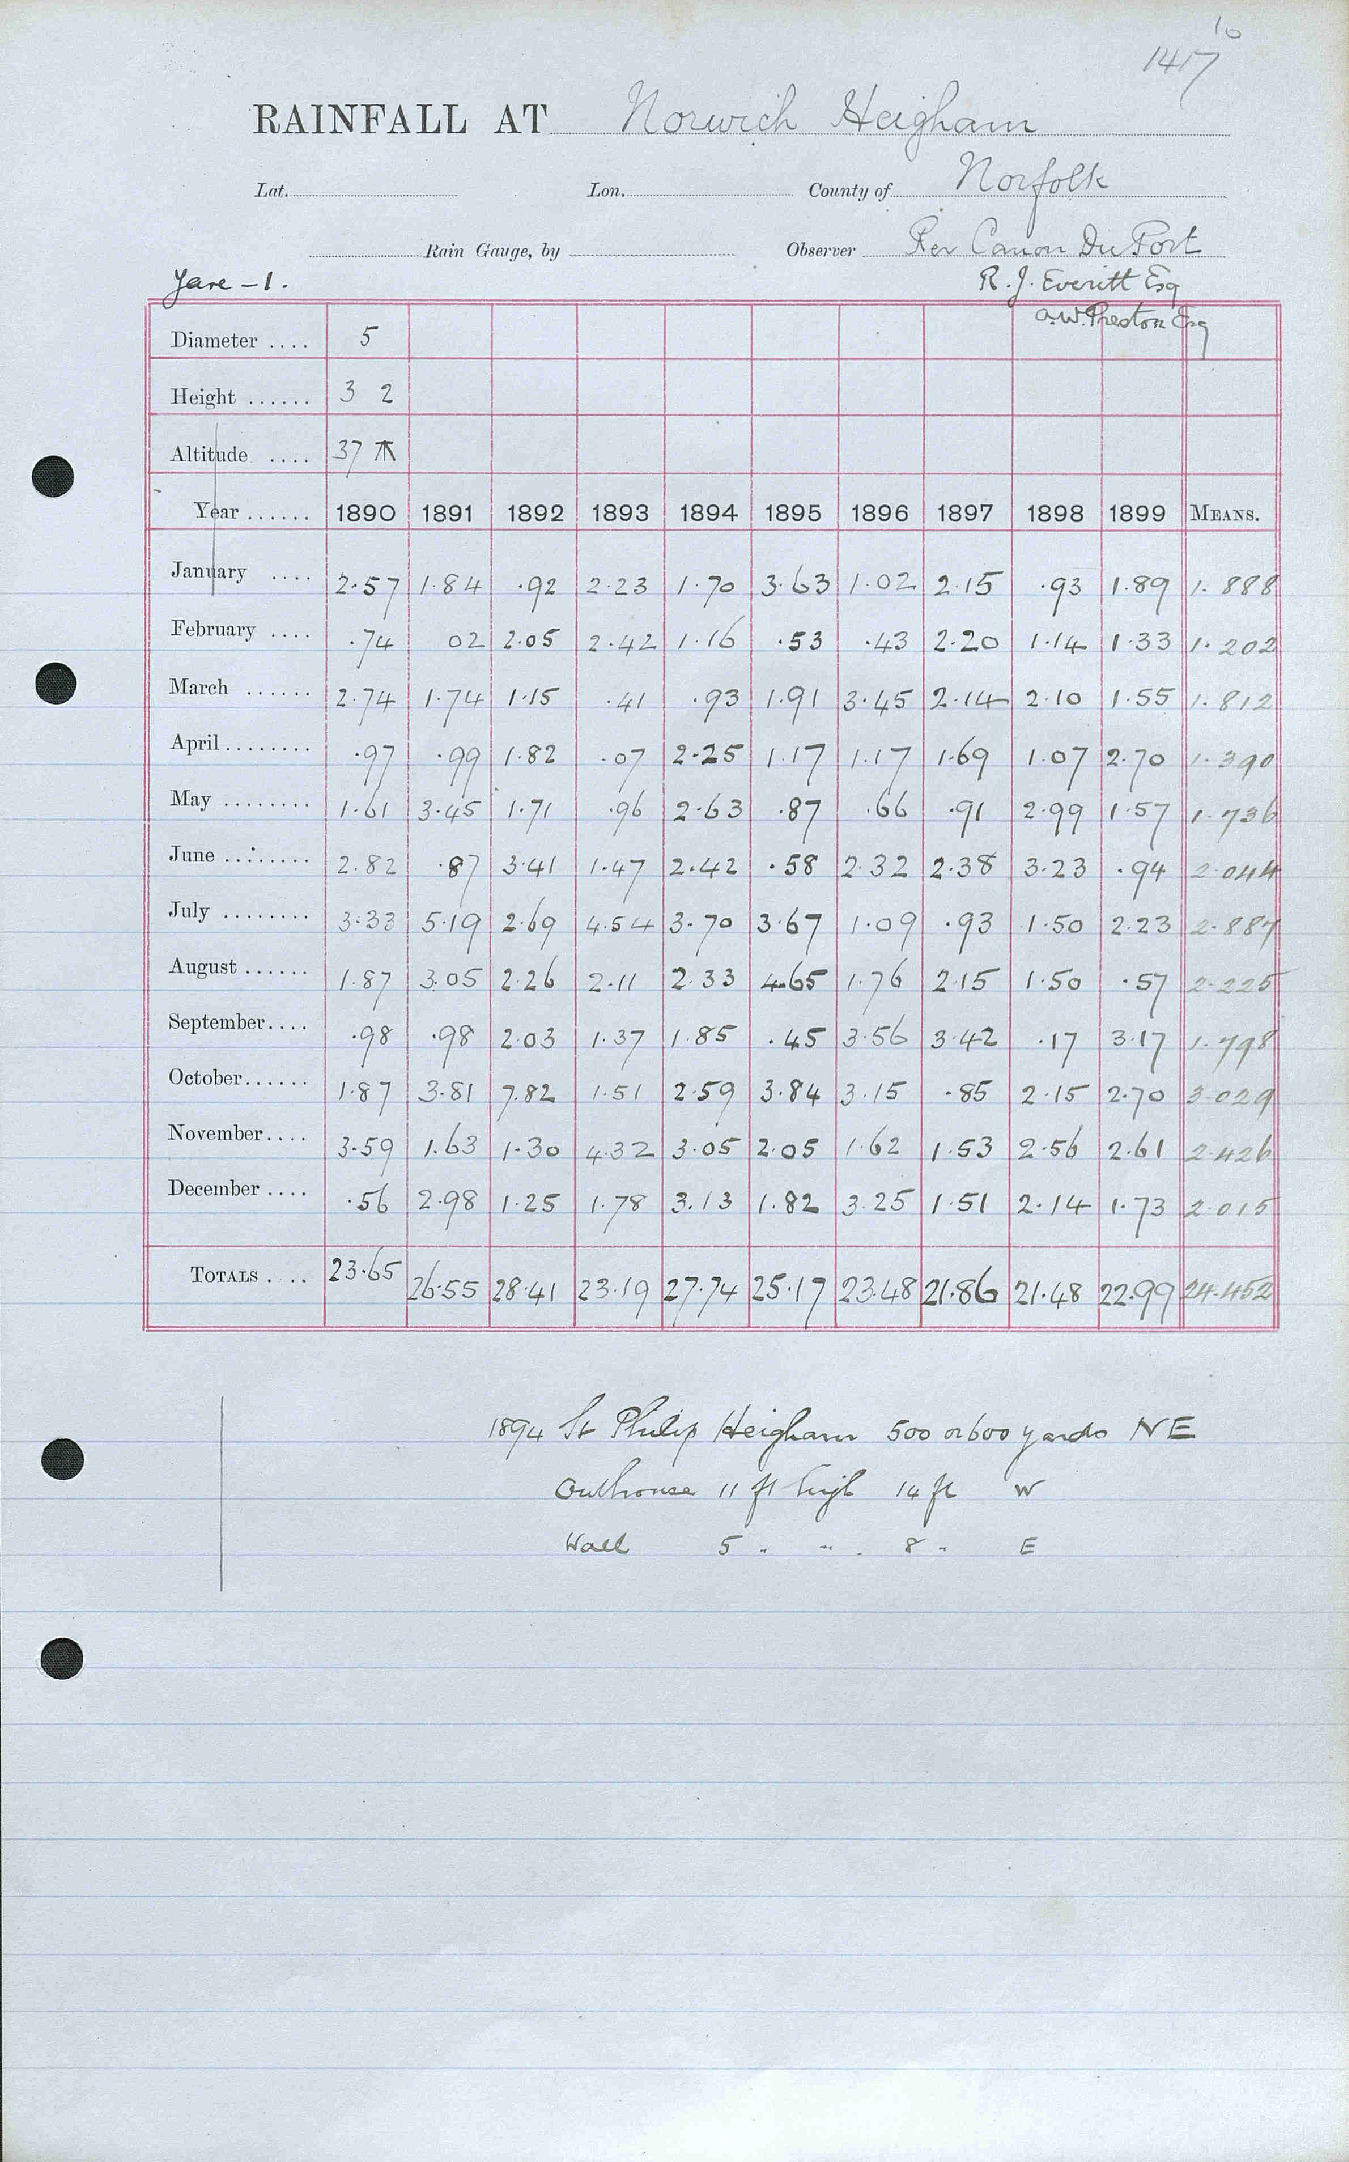 10
1417
RAINFALL AT Norwich Heigham
Lat. Lon. County of Norfolk
Rain Gauge, by Observer Rev Canon Du Port
Yare - 1. R. J. Everitt Esq
A.W. Preston Esq
Diameter .... 5
Height ...... 3 2
Altitude .... 37
Year ...... 1890 1891 1892 1893 1894 1895 1896 1897 1898 1899 MEANS.
January .... 2.57 1.84 .92 2.23 1.70 3.63 1.02 2.15 .93 1.89 1.888
February .... .74 02 2.05 2.42 1.16 .53 .43 2.20 1.14 1.33 1.202
March ...... 2.74 1.74 1.15 .41 .93 1.91 3.45 2.14 2.10 1.55 1.812
April ........ .97 .99 1.82 .07 2.25 1.17 1.17 1.69 1.07 2.70 1.390
May ........ 1.61 3.45 1.71 .96 2.63 .87 .66 .91 2.99 1.57 1.736
June ........ 2.82 .87 3.41 1.47 2.42 .58 2.32 2.38 3.23 .94 2.044
July ........ 3.33 5.19 2.69 4.54 3.70 3.67 1.09 .93 1.50 2.23 2.887
August ...... 1.87 3.05 2.26 2.11 2.33 4.65 1.76 2.15 1.50 .57 2.225
September.... .98 .98 2.03 1.37 1.85 .45 3.56 3.42 .17 3.17 1.798
October...... 1.87 3.81 7.82 1.51 2.59 3.84 3.15 .85 2.15 2.70 3.029
November.... 3.59 1.63 1.30 4.32 3.05 2.05 1.62 1.53 2.56 2.61 2.426
December .... .56 2.98 1.25 1.78 3.13 1.82 3.25 1.51 2.14 1.73 2.015
TOTALS .... 23.65 26.55 28.41 23.19 27.74 25.17 23.48 21.86 21.48 22.99 24.452
1894 St Philip Heigham 500 or 600 yards NE
Outhouse 11 ft high 14 ft W
Wall 5 " " 8 " E